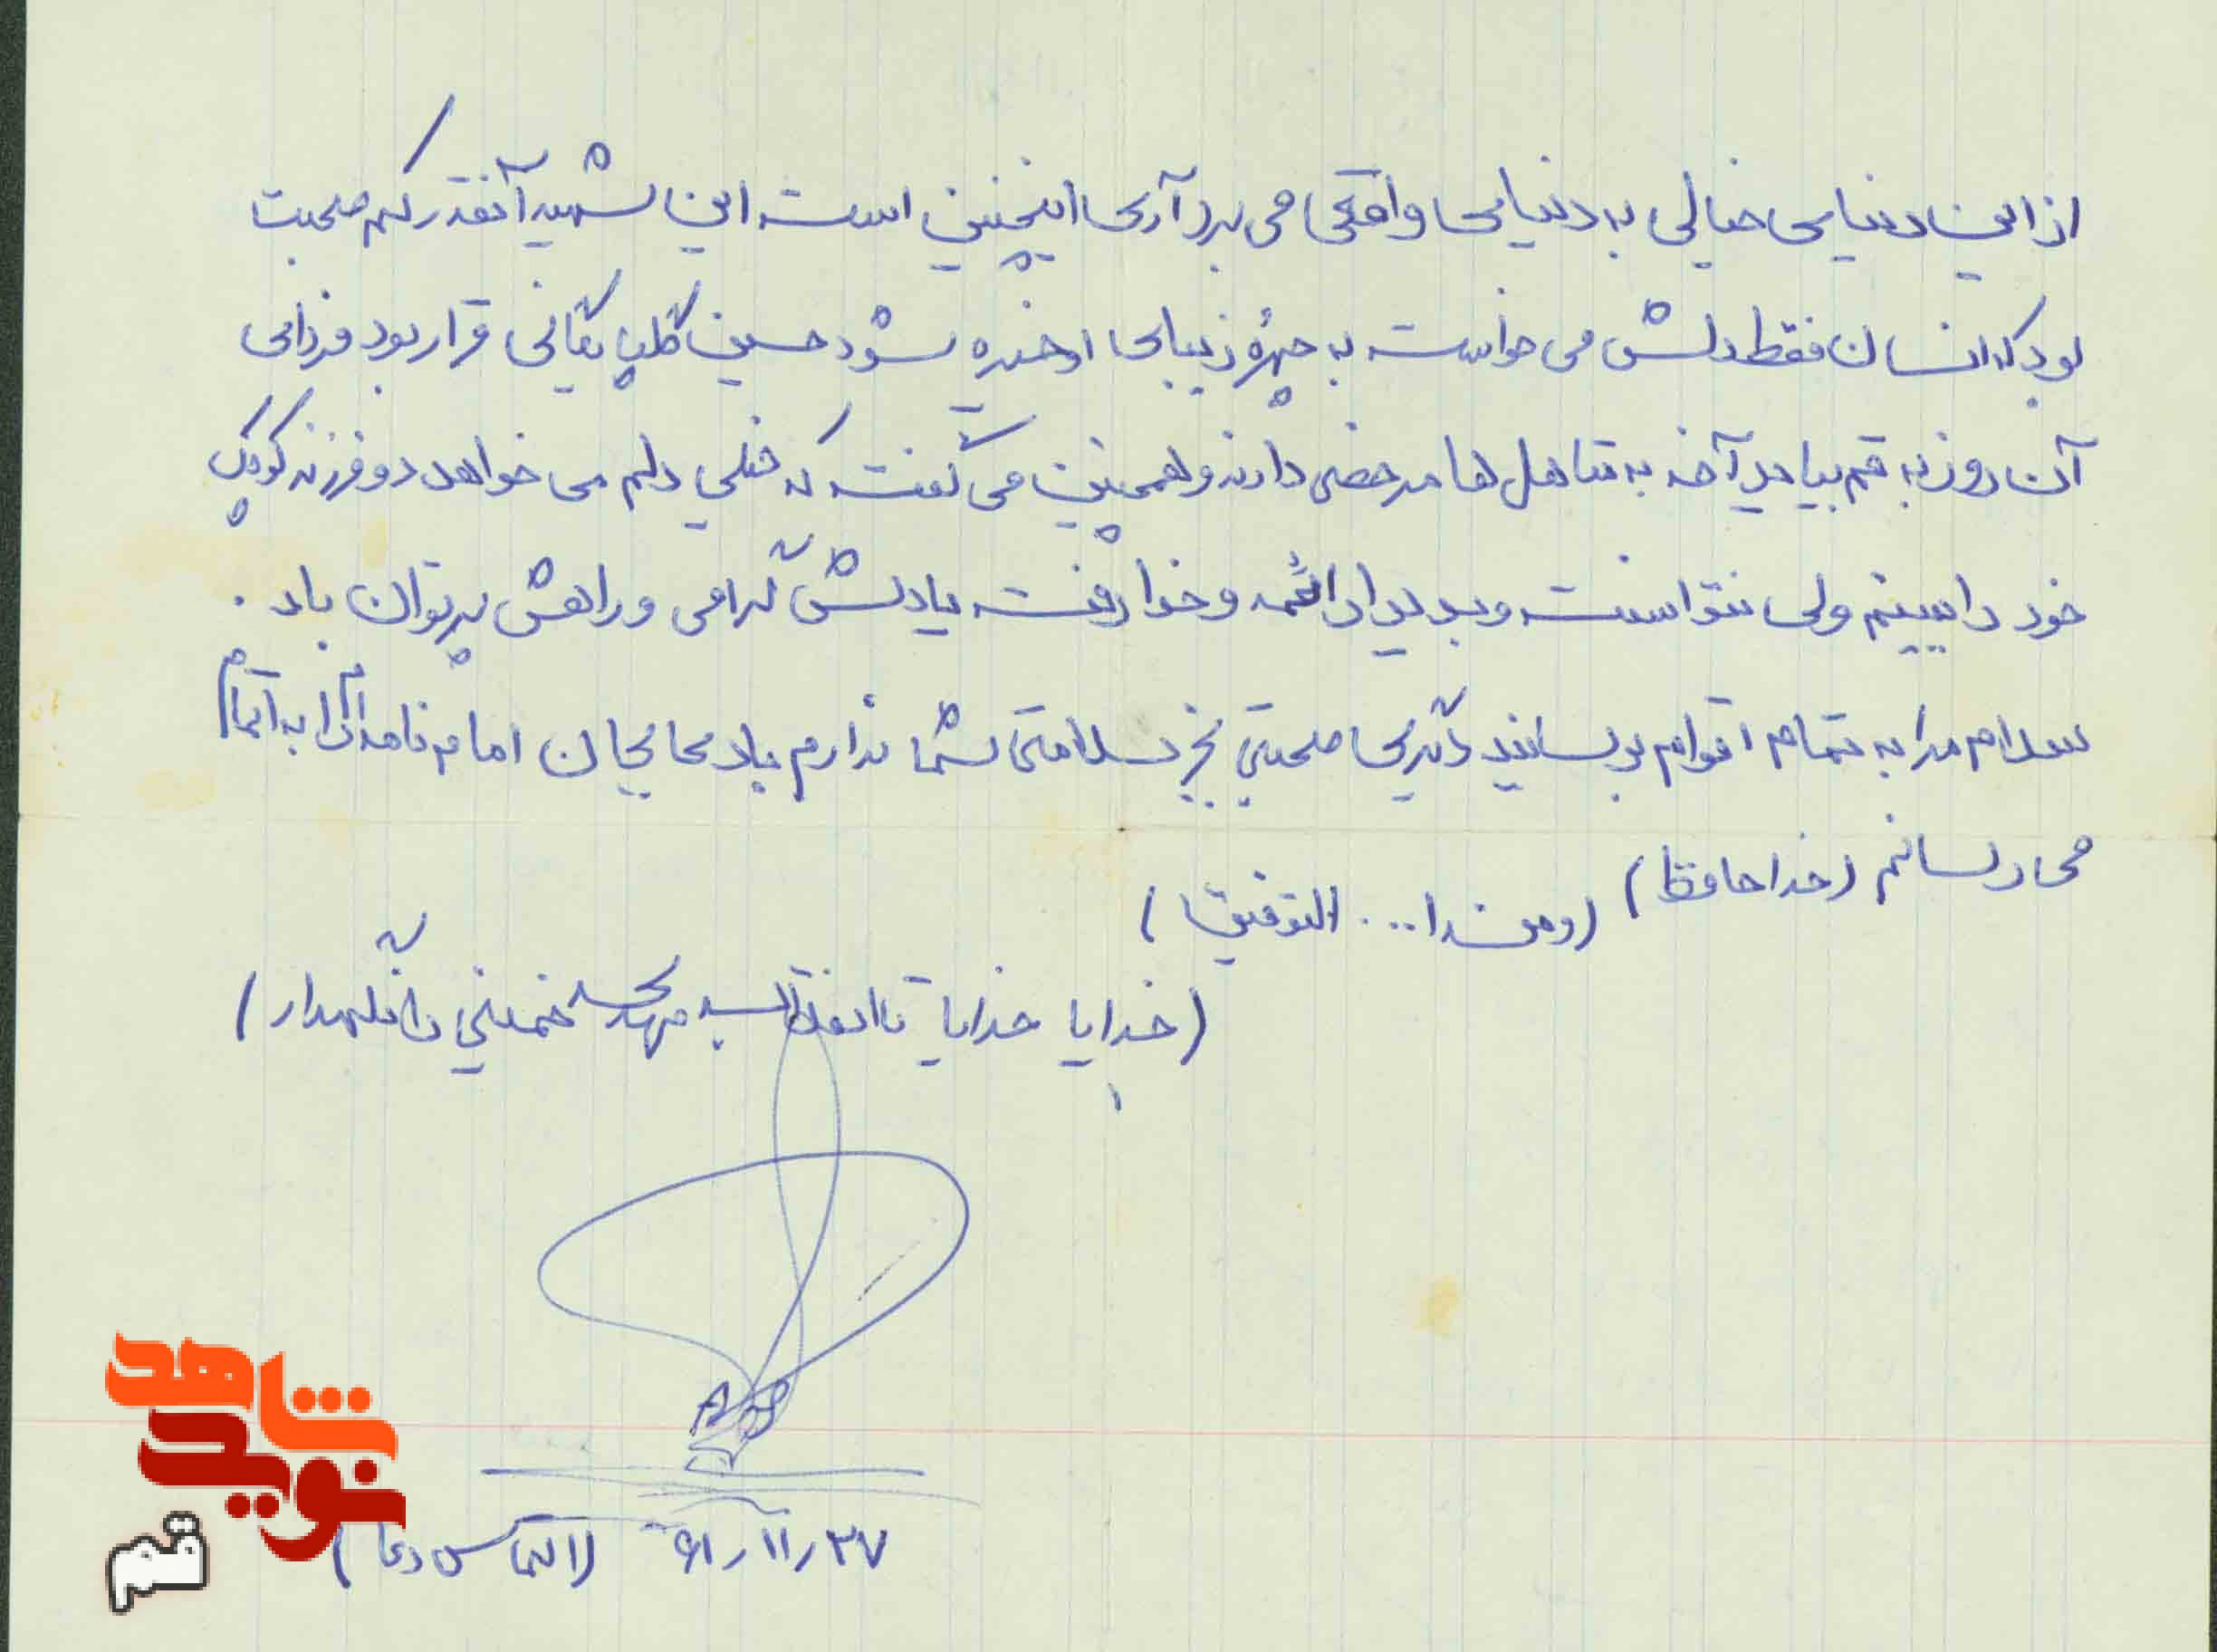 از این دنیای خیالی به دنیای واقعی می برد آری اینچنین است این شهید آنقدر کم صحبت
بود که انسان فقط دلش می خواست به چهرهٔ زیبای او خیره شود حسین گلپایگانی قرار بود فردای
آن روز به قم بیاید آخه به متاهل ها مرخصی دادند و همچنین می گفت که خیلی دلم می خواهد دو فرزند کوچک
خود را ببینم ولی نتوانست و بدیدار ائمه و خدا رفت یادش گرامی و راهش پرتوان باد .
سلام مرا به تمام اقوام برسانید دیگر صحبتی بجز سلامتی شما ندارم با دعا بجان امام نامه‌ام را به اتمام
می رسانم (خداحافظ) (ومن ا... التوفیق)
(خدایا خدایا تا انقلاب مهدی خمینی را نگهدار)
۲۷ر۱۱ر۶۱ (التماس دعا)
نوید شاهد
قم